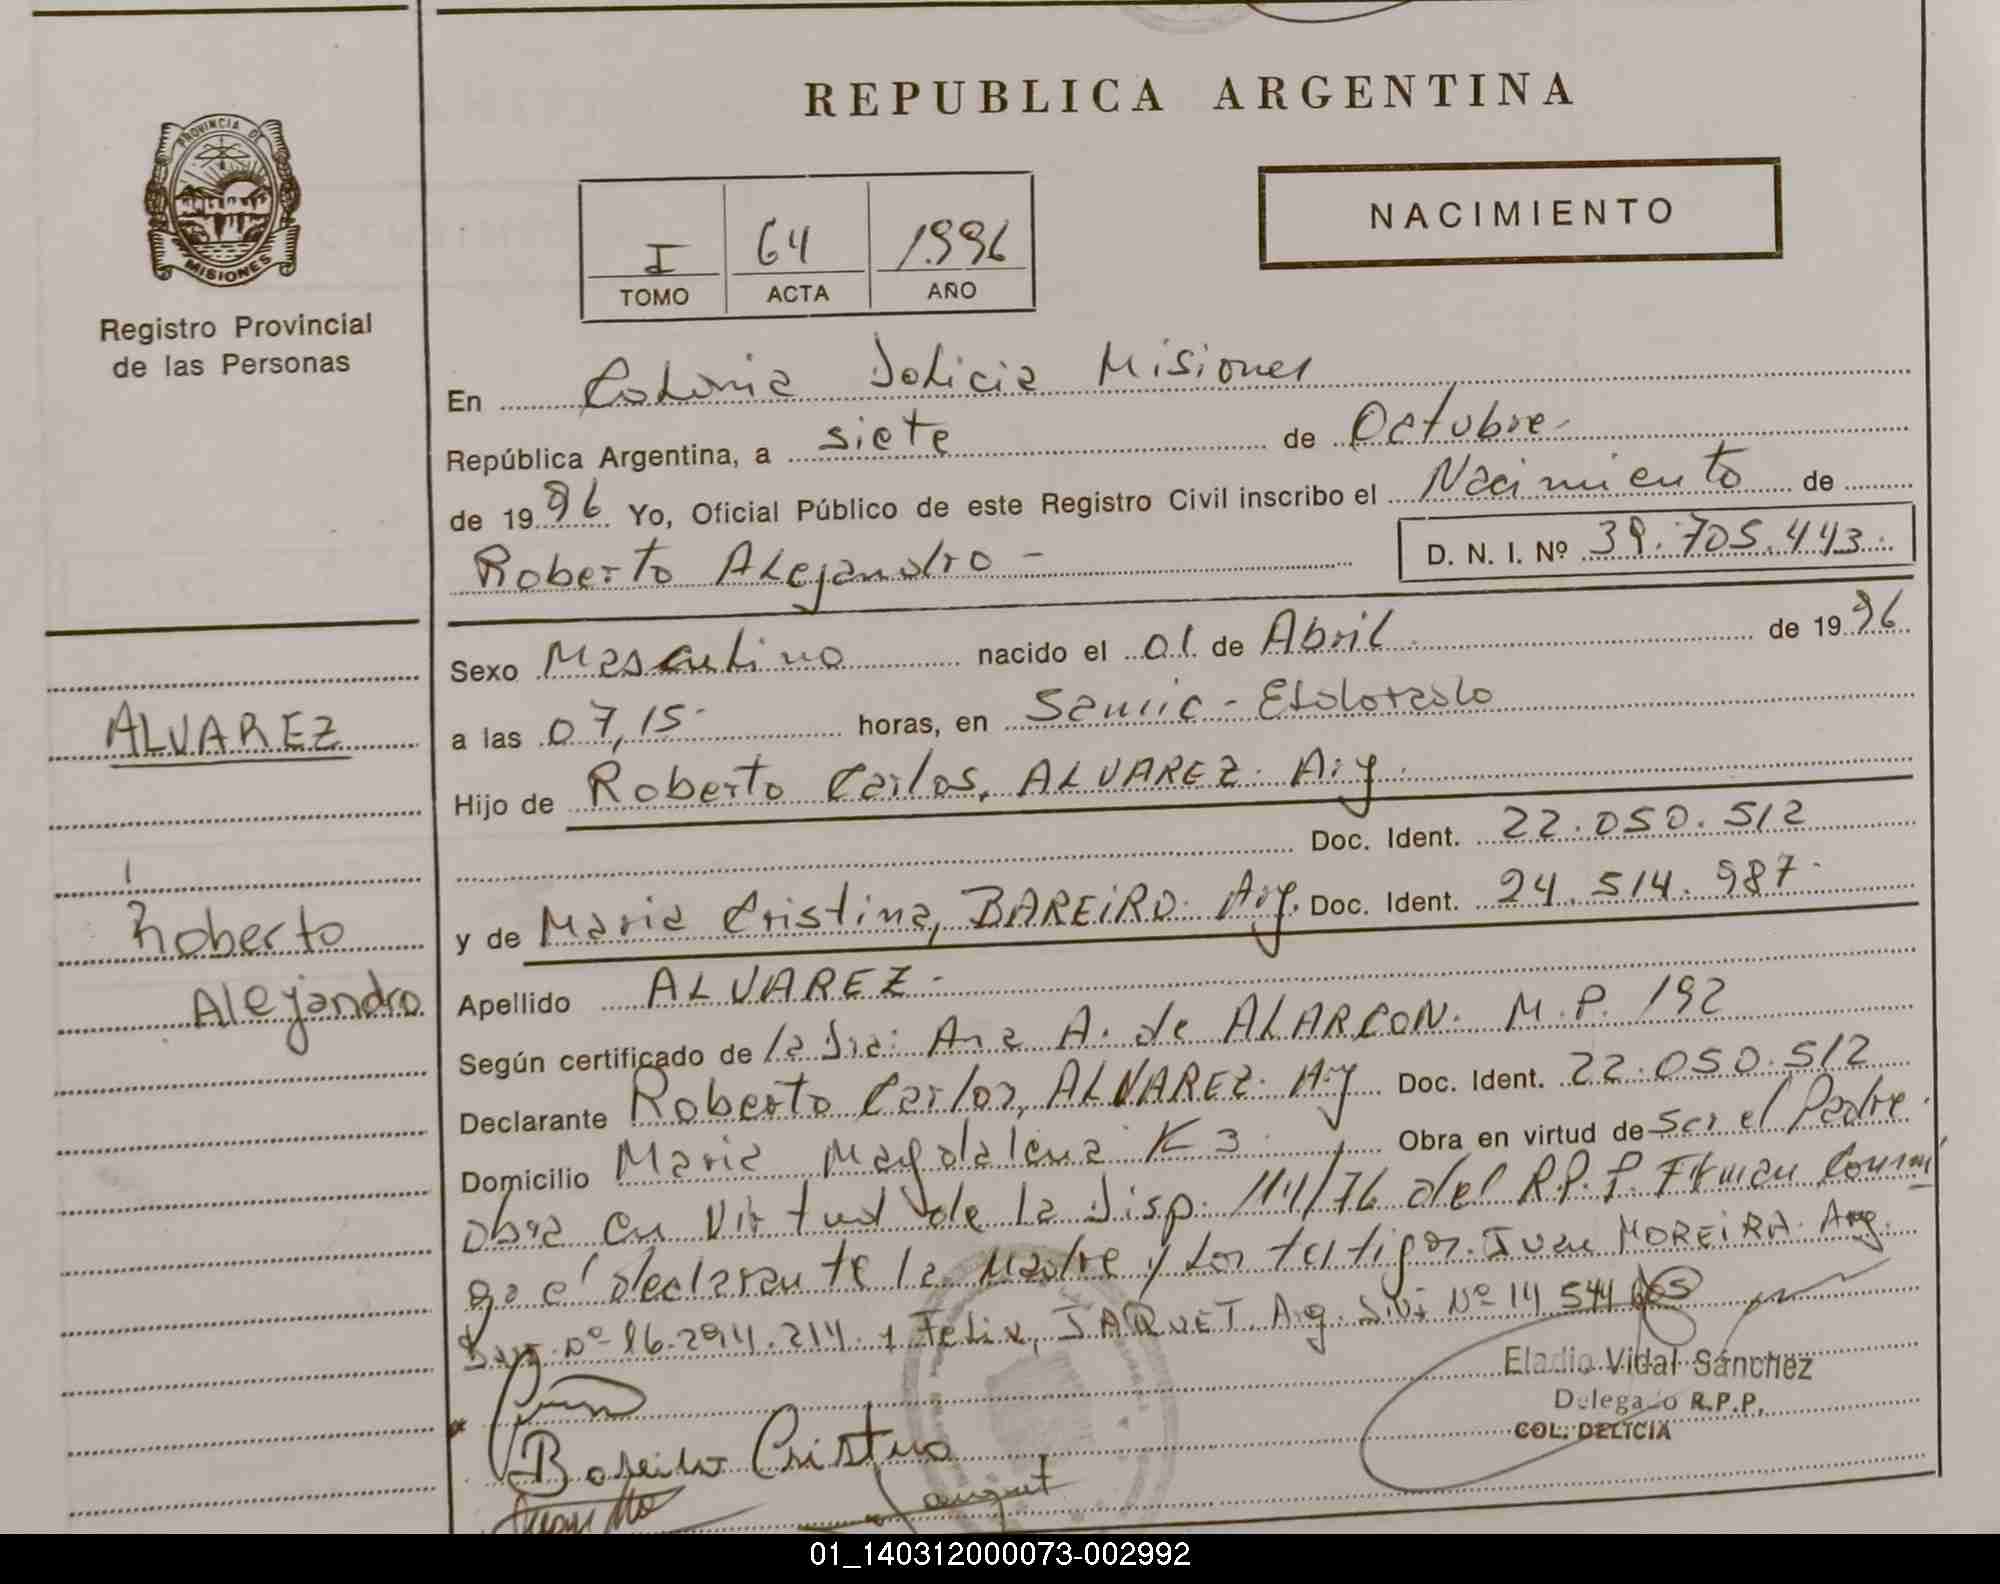 REPUBLICA ARGENTINA
PROVINCIA DE
MISIONES
Registro Provincial
de las Personas
I 64 1996
TOMO ACTA AÑO
NACIMIENTO
En Colonia Delicia Misiones
República Argentina, a siete de Octubre
de 1996 Yo, Oficial Público de este Registro Civil inscribo el Nacimiento de
Roberto Alejandro - D. N. I. Nº 39.705.443.
Sexo Masculino nacido el 01 de Abril de 1996
a las 07,15 horas, en Samic - Eldorado
Hijo de Roberto Carlos, ALVAREZ. Arg.
Doc. Ident. 22.050.512
y de Maria Cristina, BAREIRO. Arg. Doc. Ident. 24.514.987
Apellido ALVAREZ -
Según certificado de la Dra: Ana A. de ALARCON. M.P. 192
Declarante Roberto Carlos, ALVAREZ. Arg Doc. Ident. 22.050.512
Domicilio Maria Magdalena K 3. Obra en virtud de ser el Padre.
obra en virtud de la Disp. 114/76 del R.P.P. Firman Conmi
go el declarante la Madre y los testigos. Juan MOREIRA. Arg.
Nº 16.294.214. y Felix, JARQUET. Arg. DNI Nº 14 544
ALVAREZ
Roberto
Alejandro
Eladio Vidal Sánchez
Delegado R.P.P.
COL. DELICIA
Bareiro Cristina
01_140312000073-002992